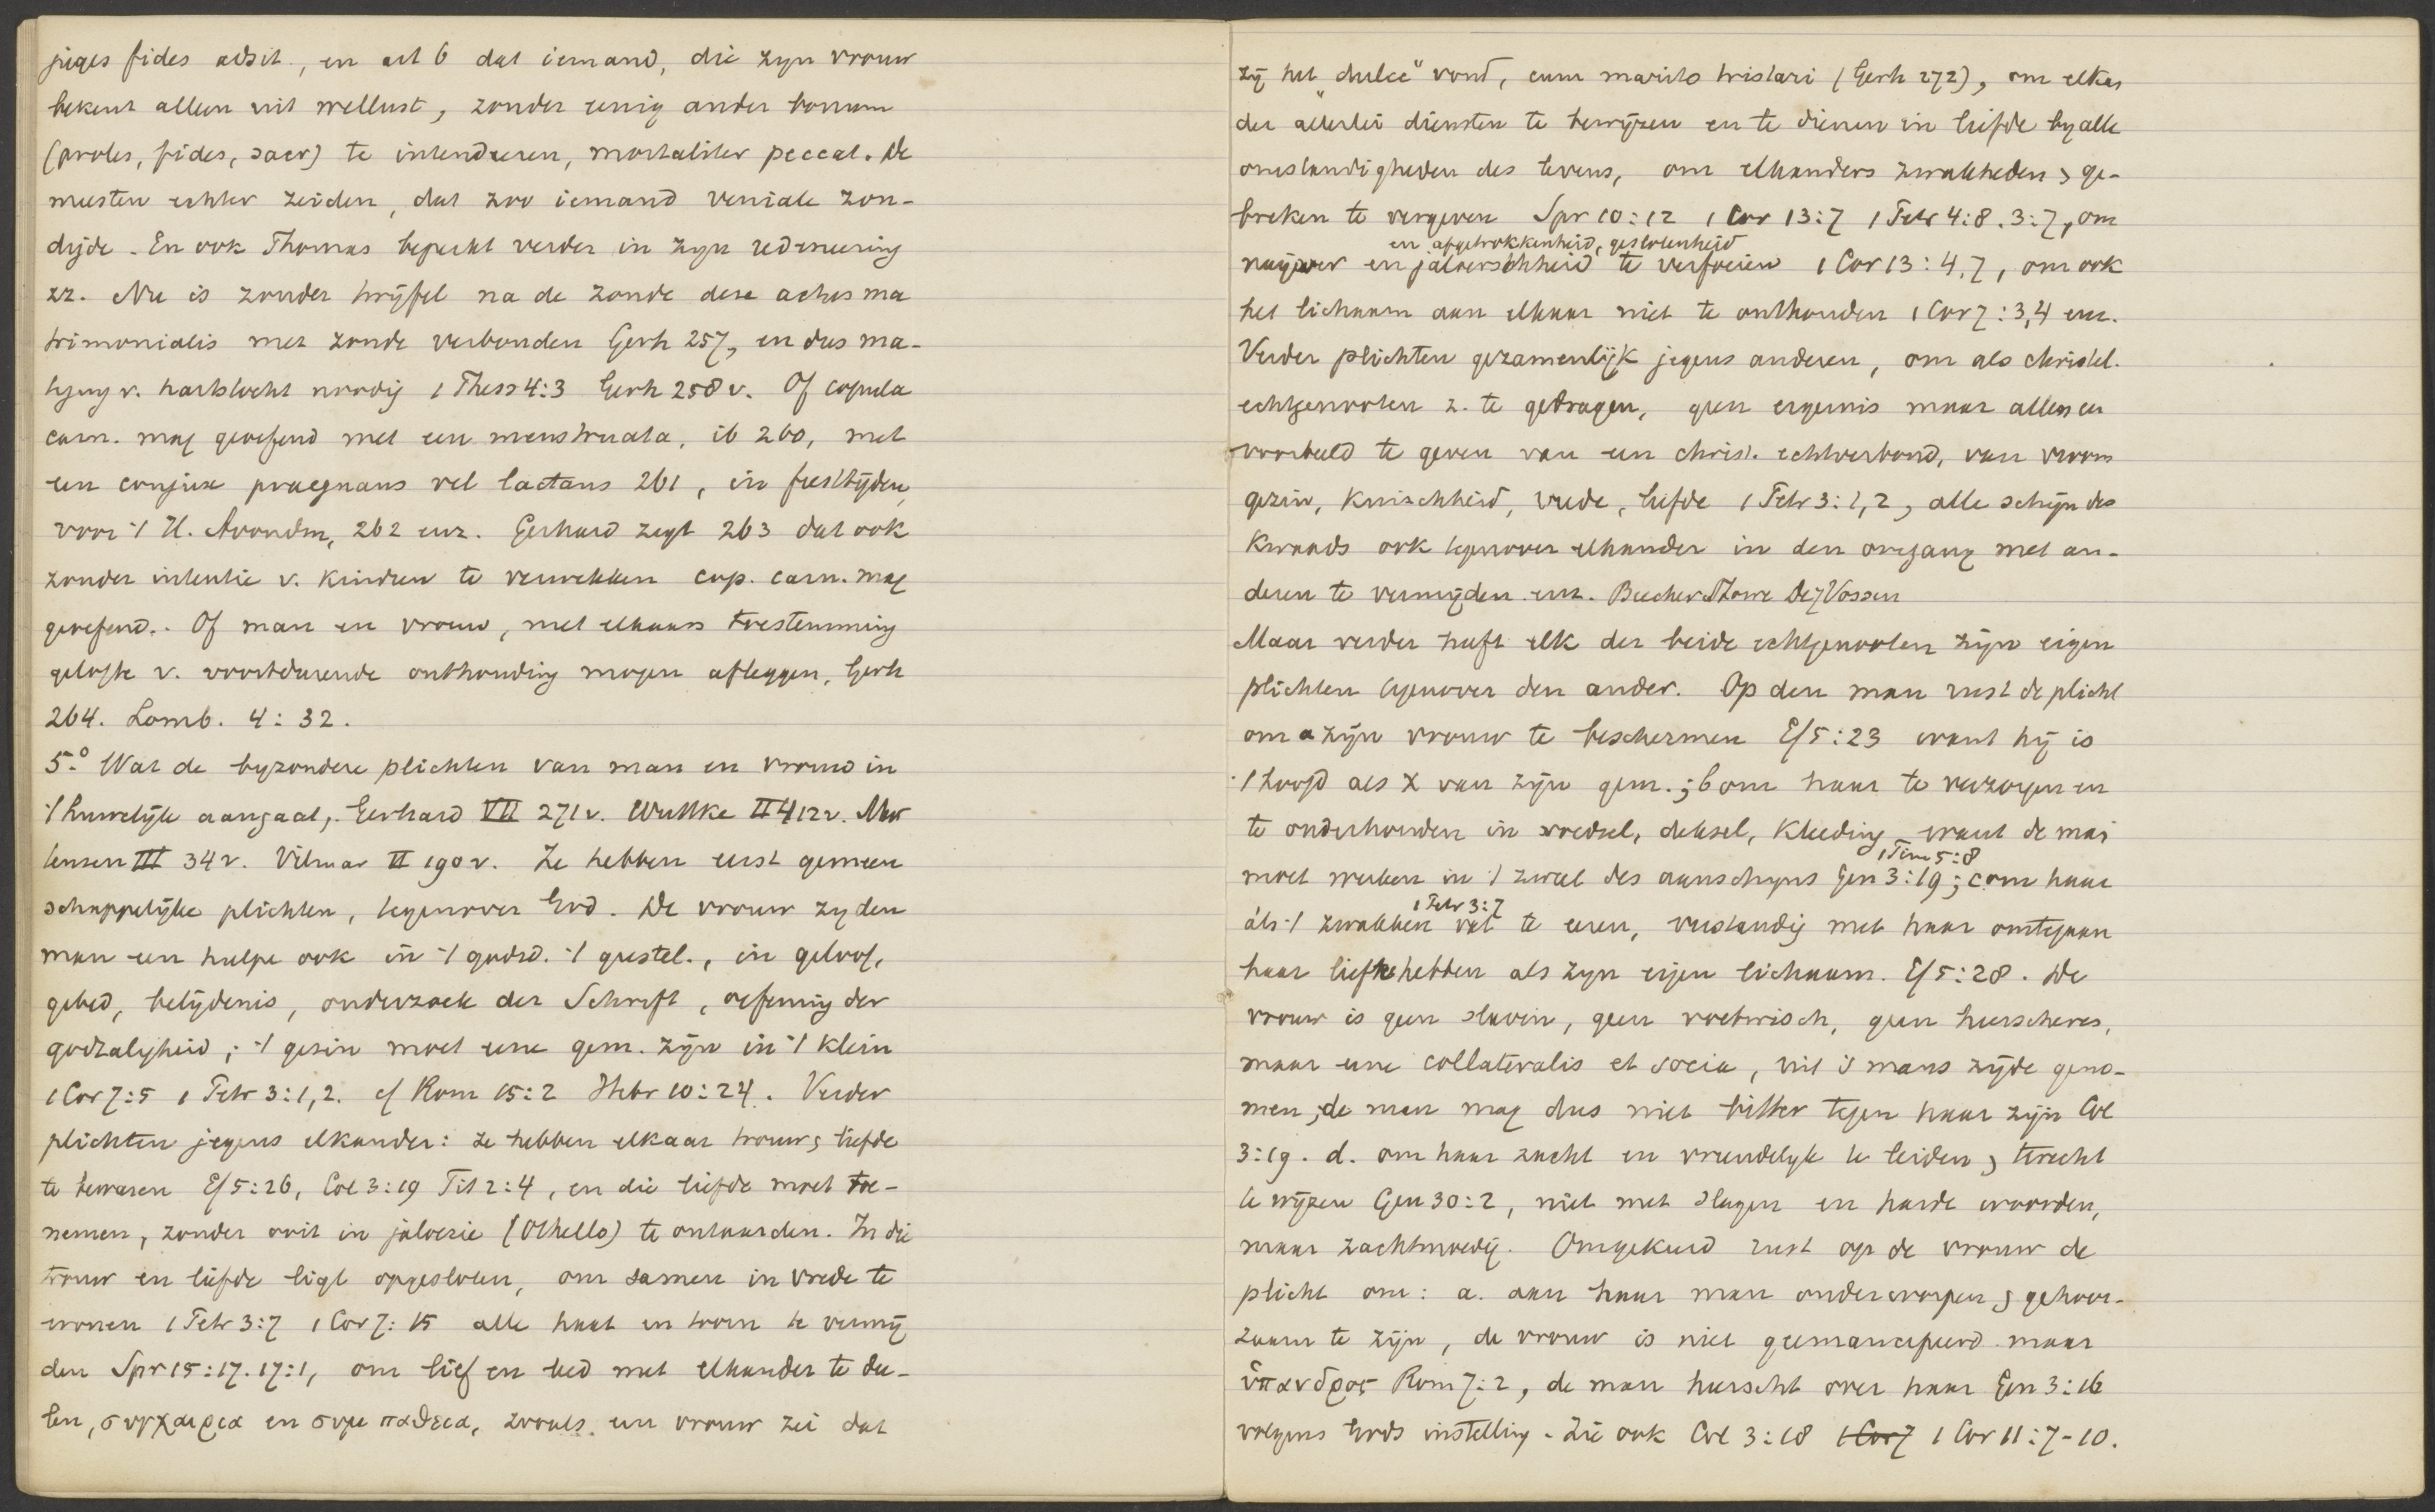 juges fides adsit., en art 6 dat iemand, die zijn vrouw
bekent alleen uit wellust, zonder eenig ander bonum
(proles, fides, sacr) te intendeeren, mortaliter peccat. De
meesten echter zeiden, dat zoo iemand veniale zon-
digde. En ook Thomas beperkt verder in zijn redeneering
zz. Nu is zonder twijfel na de zonde deze actus ma
trimonialis met zonde verbonden Gerh 257, en dus ma-
tiging v. hartstocht noodig 1 Thess 4:3 Gerh 258 v. Of copula
carn. mag geoefend met een menstruata, ib 260, met
een conjux praegnans vel lactans 261, in feesttijden,
voor 't H. Avondm, 262 enz. Gerhard zegt 263 dat ook
zonder intentie v. kinderen te verwekken cop. carn. mag
geoefend.. Of man en vrouw, met elkaars toestemming
gelofte v. voortdurende onthouding mogen afleggen, Gerh
264. Lomb. 4:32.
5.° Wat de byzondere plichten van man en vrouw in
't huwelijk aangaat, Gerhard VII 271 v. Wuttke II 412 v. Mar
tensen III 34 v. Vilmar II 190 v. Ze hebben eerst gemeen
schappelijke plichten, tegenover God. De vrouw zy den
man een hulpe ook in 't godsd. 't geestel., in geloof,
gebed, belijdenis, onderzoek der Schrift, oefening der
godzaligheid; 't gezin moet eene gem. zijn in 't klein
1 Cor 7:5 1 Petr 3:1,2. cf Rom 15:2 Hebr 10:24. Verder
plichten jegens elkander: ze hebben elkaar trouw & liefde
te bewaren Ef 5:26, Col 3:19 Tit 2:4, en die liefde moet toe-
nemen, zonder ooit in jaloezie (Othello) te ontaarden. In die
trouw en liefde ligt opgesloten, om samen in vrede te
wonen 1 Petr 3:7 1 Cor 7:15 alle haat en toorn te vermij
den Spr 15:17. 17:1, om lief en leed met elkander te dee-
len, συγχαιρεια en συμπαθεια, zooals een vrouw zei dat
zij het „dulce" vond, cum marito tristari (Gerh 272), om elkan
der allerlei diensten te bewijzen en te dienen in liefde by alle
omstandigheden des levens, om elkanders zwakheden & ge-
breken te vergeven Spr 10:12 1 Cor 13:7 1 Petr 4:8. 3:7, om
en afgetrokkenheid, geslotenheid
naijver en jaloerschheid te verfoeien 1 Cor 13:4,7, om ook
het lichaam aan elkaar niet te onthouden 1 Cor 7:3,4 enz.
Verder plichten gezamenlijk jegens anderen, om als christel.
echtgenooten z. te gedragen, geen ergernis maar allen een
voorbeeld te geven van een christ. echtverbond, van vroom
gezin, kuischheid, vrede, liefde 1 Petr 3:1,2, alle schijn des
kwaads ook tegenover elkander in den omgang met an-
deren te vermijden enz. Beecher Stowe De Vossen
Maar verder heeft elk der beide echtgenooten zijn eigen
plichten tegenover den ander. Op den man rust de plicht
om a zijn vrouw te beschermen Ef 5:23 want hij is
't hoofd als X van zijn gem.; b om haar te verzorgen en
te onderhouden in voedsel, deksel, kleeding, want de man
1 Tim 5:8
moet werken in 't zweet des aanschijns Gen 3:19; c om haar
1 Petr 3:7
als 't zwakkere vat te eeren, verstandig met haar omtegaan
haar lief te hebben als zijn eigen lichaam. Ef 5:28. De
vrouw is geen slavin, geen voetwisch, geen heerscheres,
maar eene collateralis et socia, uit 's mans zijde geno-
men, de man mag dus niet bitter tegen haar zijn Col
3:19. d. om haar zacht en vriendelijk te leiden & terecht
te wijzen Gen 30:2, niet met slagen en harde woorden,
maar zachtmoedig. Omgekeerd rust op de vrouw de
plicht om: a. aan haar man onderworpen & gehoor-
zaam te zijn, de vrouw is niet geemancipeerd maar
ὑπανδρος Rom 7:2, de man heerscht over haar Gen 3:16
volgens Gods instelling. Zie ook Col 3:18 1 Cor 7 1 Cor 11:7-10.